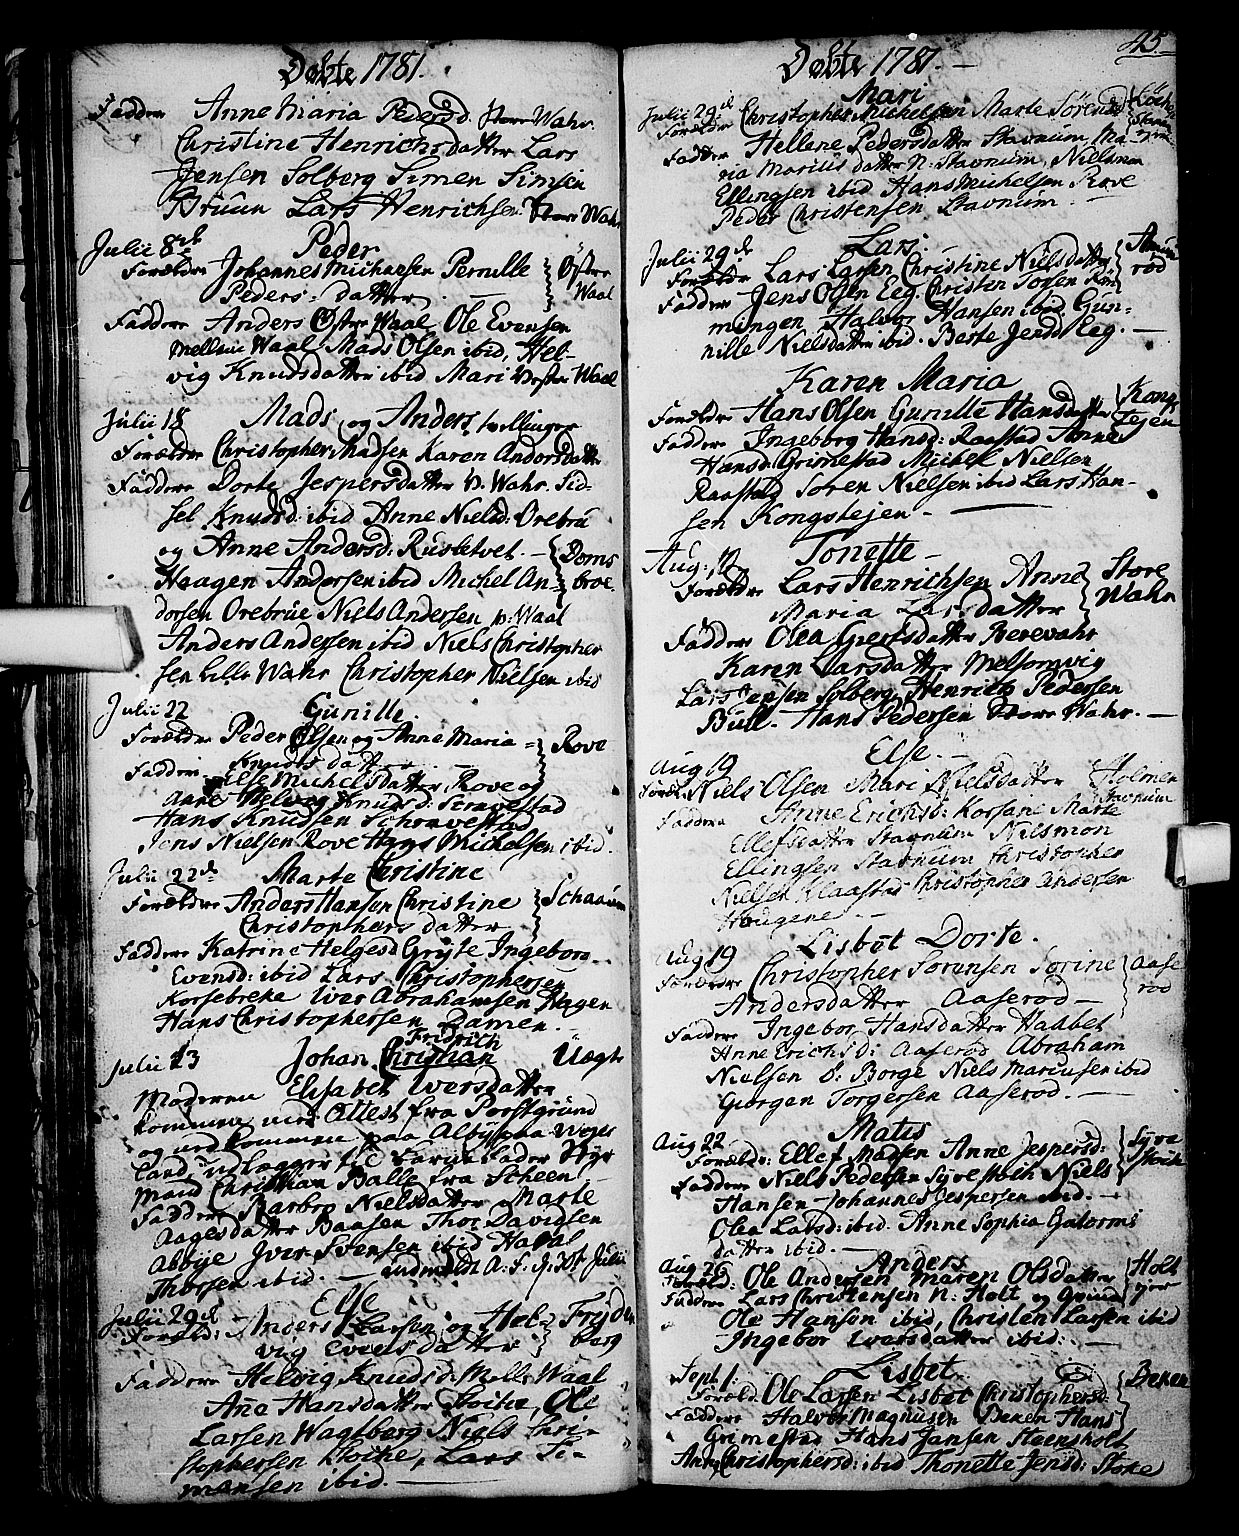 Døbte 1781.
Faddere Anne Maria Pedersd. Store Wahr.
Christine Henrichsdatter Lars
Jensen Solberg Simen Simsen
Bruun Lars Henrichsen Store Wahr
Julii 8de Peder
Forældre Johannes Michaelsen Pernille Øster
Peders-datter Waal
Faddere Anders Øster Waal Ole Evensen
Mellem Waal Mads Olsen ibid, Hel-
vig Knudsdatter ibid Mari Vester Waal
Julii 18 Mads og Anders tvellinger
Forældre Christopher Madsen Karen Andersdatter
Faddere Dorte Jespersdatter N. Wahr. Sid-
sel Knudsd: ibid Anne Nielsd: Orebrü
og Anne Andersd: Rusletvet. Doms
Haagen Andersen ibid Michel An- broe
dersen Orebrüe Niels Andersen N: Waal
Anders Andersen ibid Niels Christopher
sen Lille Wahr Christopher Nielsen ibid
Julii 22 Gunille
Forældre Peder Olsen og Anne Maria Rove
Knuds datter
Faddere Else Michelsdatter Rove og
Anne Helvig Knudsd: Scravestad
Hans Knudsen Schravestad
Jens Nielsen Rove Hans Michelsen ibid.
Julii 22de Marte Christine
Forældre Anders Hansen Christine Schaaum
Christophers datter
Faddere Katrine Helgesd Gryte Ingebor
Evensd: ibid Lars Christophersen
Korsebreke Iver Abrahamsen Hagen
Hans Christophersen Ramen.
Fridrich
Julii 23 Johan Christian Uægte
Moderen Elisabet Iversdatter
kommen med Attest fra Porsgrund
og nedkommen paa Albye paa Weger
land, udlægger til Barnefader Styr
mand Christian Balle fra Scheen
Faddere Barbro Nielsdatter Marte
Aagesdatter Baasen Thor Davidsen
Abbye Iver Svensen ibid
Thorsen ibid. indmeldt A. S. J. 30t Julii
Julii 29de Else
Foræld: Anders Larsen og Hel- Frydn
vig Evensdatter berg
Faddere Helvig Knudsd: Mell: Waal
Ane Hansdatter Stoche, Ole
Larsen Wagtberg Niels Chri-
stophersen Stoche, Lars Si-
mensen ibid.
45.
Døbte 1781.
Mari
Julii 29de
Forældre Christopher Michelsen Marte Sørensd
Faddere Hellene Pedersdatter Stavnum, Ma-
ria Marius datter N: Stavnum, Nielsmon
Ellingsen ibid Hans Michelsen Rove
Peder Christensen Stavnum.
Julii 29de Lars.
Forældre Lars Larsen Christine Nielsdatter
rød
Faddere Jens Olsen Eeg. Christen Sørsen Røn
ningen Halvor Hansen ibid Gun-
nille Nielsdatter ibid. Berte Jensd: Eeg.
Karen Maria
Forældre Hans Olsen Gunille Hansdatter Kongs
Faddere Ingeborg Hansd: Raastad Anne tejen
Hansd: Grimestad Michel Nielsen
Raastad Søren Nielsen ibid Lars Han-
sen Kongstejen.
Aug: 12 Tonette
Forældre Lars Henrichsen Anne Store
Maria Larsdatter Wahr
Faddere Olea Giertsdatter Berevahr
Karen Larsdatter Melsomvig
Lars Jensen Solberg, Henrich Pedersen
Bull. Hans Pedersen Store Wahr.
Else.
Aug 19
Foræld: Niels Olsen Mari Nielsdatter Holmen
Stavnum
Faddere Anne Erichsd: Korsane Marte
Ellefsdatter Stavnum Nilsmon
Ellingsen Stavnum Christopher
Nielsen Klaastad Christopher Andersen
Haugene.
Aug 19 Lisbet Dorte.
Forældre Christopher Sørensen Sørine Aase
Andersdatter Aaserød rød
Faddere Ingebor Hansdatter Haabet
Anne Erichsd: Aaserød Abraham
Nielsen ø: Borge Niels Mariusen ibid
Giorgen Torgersen Aaserød.
Aug 22 Matis
Forældr: Ellef Madsen Anne Jespersd: Syve
Faddere Niels Pedersen Syvestoch Niels Stoch
Hansen Johannes Jespersen ibid.
Olea Larsd: ibid. Anne Sophia Gutorms
datter ibid.
Aug 26 Anders
Foræld: Ole Andersen Maren Olsdatter Holt
Faddere Lars Christensen N: Holt og
Ole Hanson ibid, Christen Larsen ibid
Ingebor Iversdatter ibid.
Sept 1. Lisbet.
Foræld: Ole Larsen Lisbet Christophersd: Beken
Faddere Halvor Magnusen Beken Hans
Grimestad Hans Jansen Steensholt
Anne Christophersd: ibid Thonette Jensd: Stoke